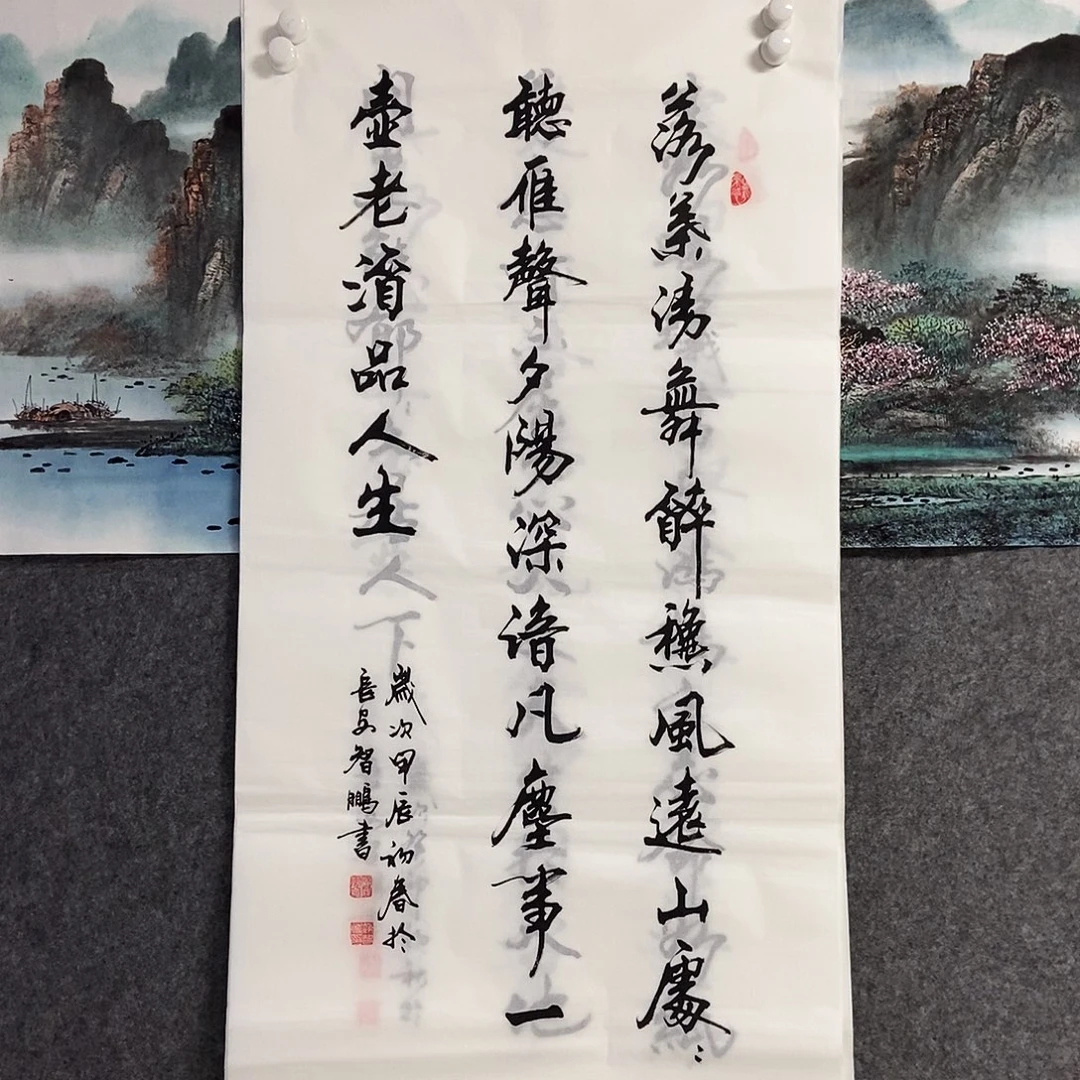 落葉舞醉穐風遠山處々
聽雁聲夕陽深諳凡塵事一
壺老酒品人生
歲次甲辰初春於
長安智鵬書